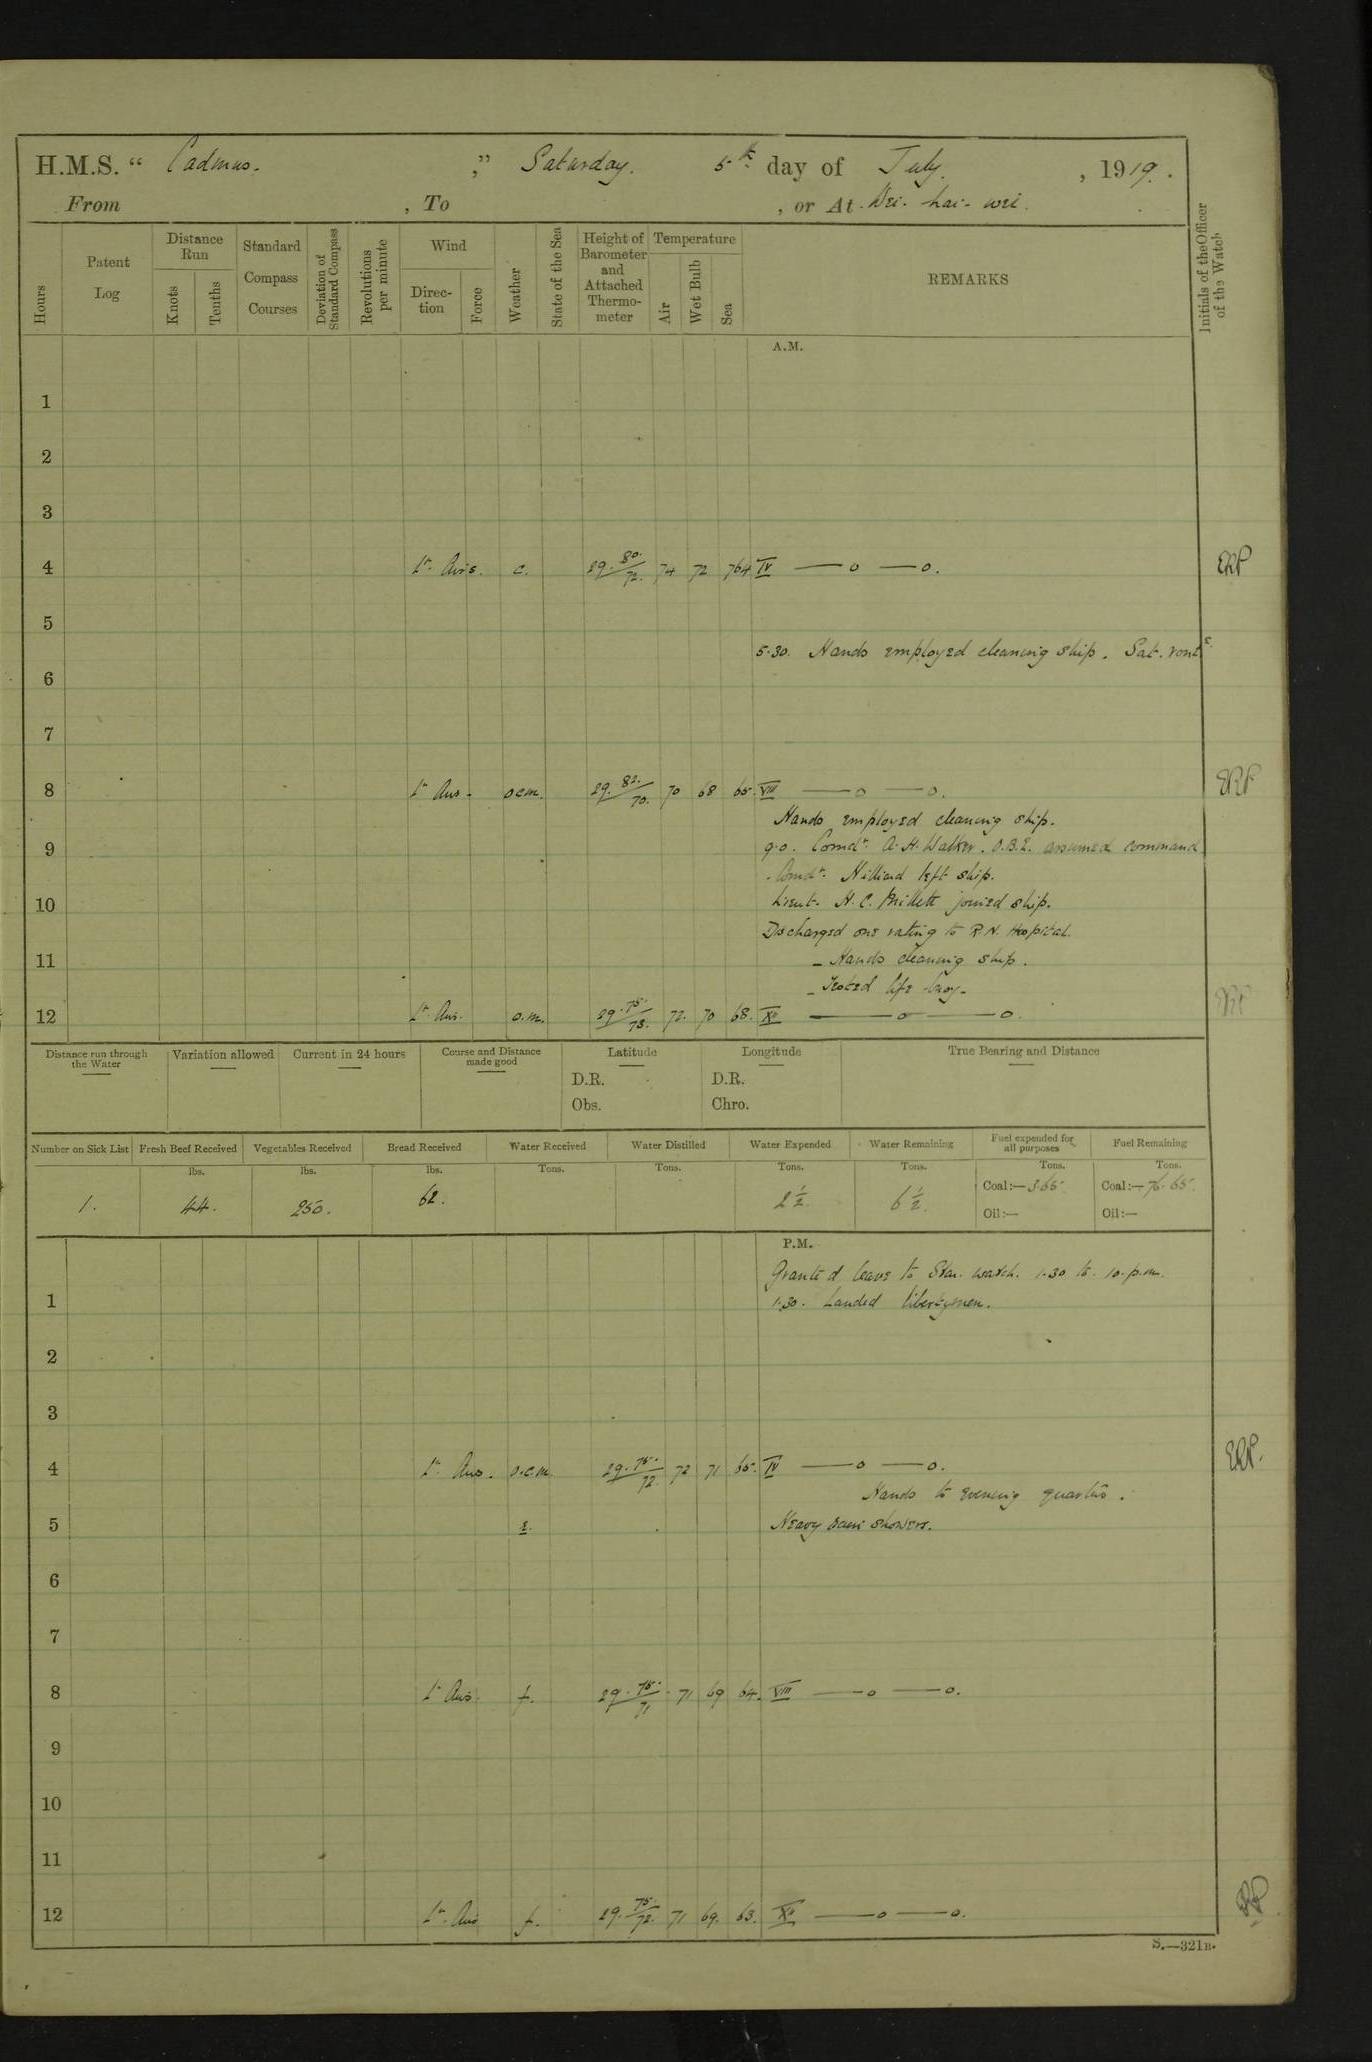 H.M.S. “ Cadmus. ,” Saturday. 5th day of July. , 1919.
From , To , or At Wei-hai-wei.
Hours
Patent Log
Distance Run
Knots
Tenths
Standard Compass Courses
Deviation of Standard Compass
Revolutions per minute
Wind
Direction
Force
Weather
State of the Sea
Height of Barometer and Attached Thermometer
Temperature
Air
Wet Bulb
Sea
REMARKS
Initials of the Officer of the Watch
A.M.
1
2
3
4 Lt. Airs. c. 29.80/72. 74 72 764 IV —o —o. ERP
5
5.30. Hands employed cleaning ship. Sat. route.
6
7
8 Lt Airs. o.c.m. 29.82./70. 70 68 65. VIII —o —o. ERP
Hands employed cleaning ship.
9 9.0. Comdr. A.H. Walker. O.B.E. assumed command
Comdr. Hilliard left ship.
10 Lieut. H.C. Millett joined ship.
Discharged one rating to R.N. Hospital.
11 - Hands cleaning ship.
- Tested life-buoy-
12 Lt. Airs. o.m. 29.75./73. 72. 70 68. XII —o —o.
Distance run through the Water
Variation allowed
Current in 24 hours
Course and Distance made good
Latitude
D.R.
Obs.
Longitude
D.R.
Chro.
True Bearing and Distance
Number on Sick List Fresh Beef Received Vegetables Received Bread Received Water Received Water Distilled Water Expended Water Remaining Fuel expended for all purposes Fuel Remaining
lbs. lbs. lbs. Tons. Tons. Tons. Tons. Tons. Tons.
1. 44. 250. 62. 2½ 6½ Coal:— 3.65 Coal:— 76.65.
Oil:— Oil:—
P.M.
Granted leave to Star. watch. 1.30 to 10.p.m.
1 1.30. Landed libertymen.
2
3
4 Lt Airs. o.c.m. 29.75./72. 72 71 65. IV —o —o. ERP.
Hands to evening quarters.
5 r. Heavy rain showers.
6
7
8 Lt Airs. f. 29.75./71 71 69 64. VIII —o —o.
9
10
11
12 Lt. Airs f. 29.75./72. 71 69. 63. XII —o —o.
S.—321B.